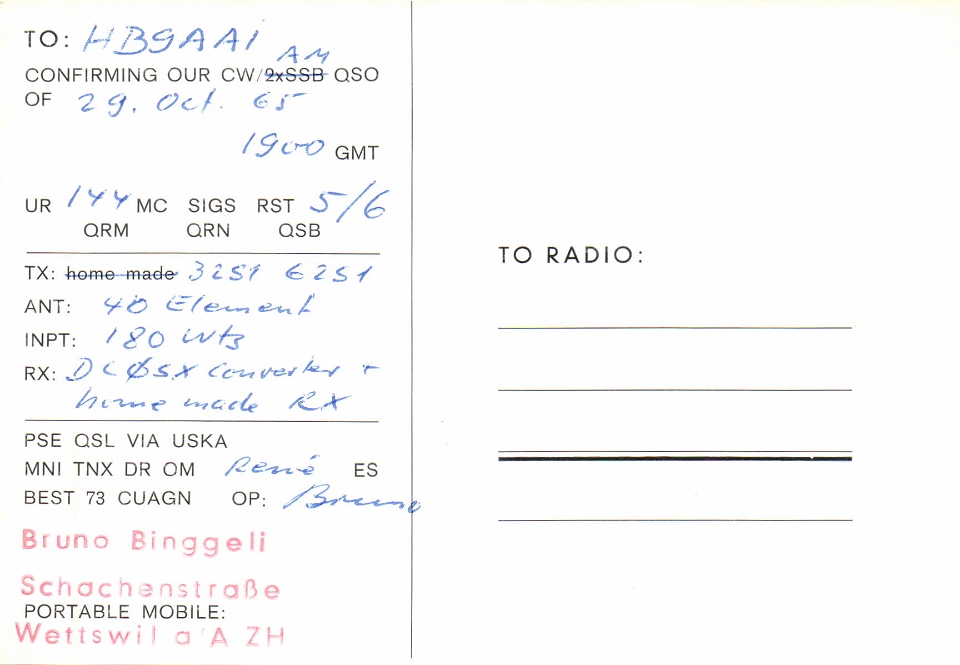 TO: HB9AAI
AM
CONFIRMING OUR CW/2xSSB QSO
OF 29. Oct. 65
1900 GMT
UR 144 MC SIGS RST 5/6
QRM QRN QSB
TX: home made 32S1 62S1
ANT: 40 Element
INPT: 180 Wts
RX: DL0SX Converter +
home made RX
PSE QSL VIA USKA
MNI TNX DR OM René ES
BEST 73 CUAGN OP: Bruno
Bruno Binggeli
Schachenstraße
PORTABLE MOBILE:
Wettswil a'A ZH
TO RADIO: